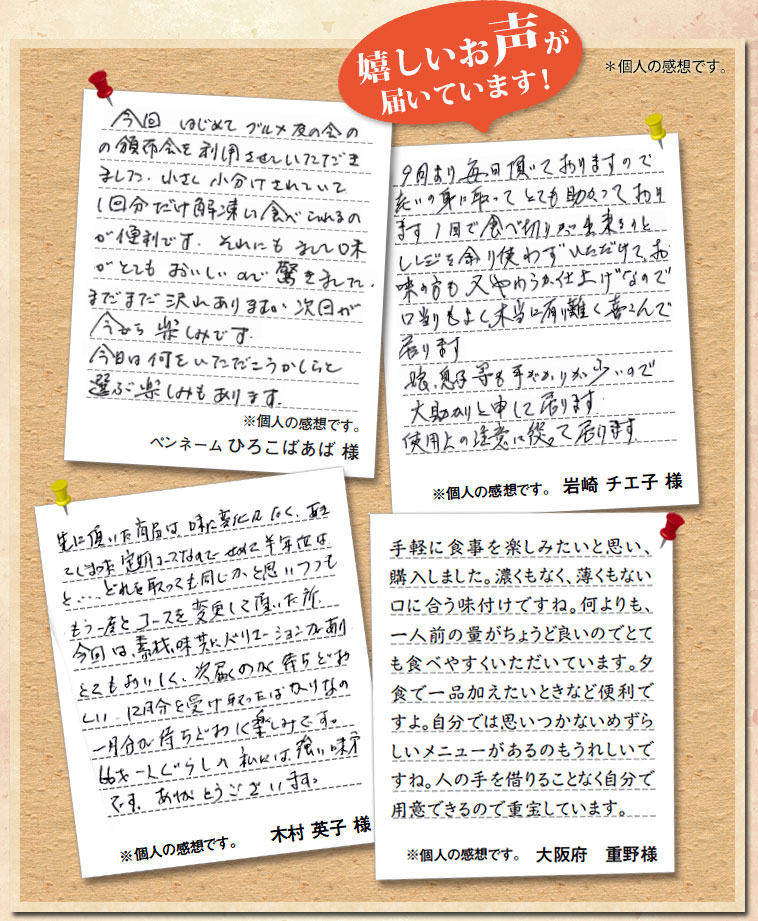 嬉しいお声が
届いています!
＊個人の感想です。
今回 はじめて グルメ夜の会の
の頒布会を利用させていただき
ました. 小さく小分けされていて
1回分だけ解凍し食べられるの
が便利です. それにも まして味
がとても おいしいので 驚きました.
まだまだ 沢山あります。次回が
今から 楽しみです.
今日は何をいただこうかしらと
選ぶ楽しみもあります.
※個人の感想です。
ペンネーム ひろこばあば 様
9月より毎日頂いておりますので
老いの身に取って とても助かっており
ます 1回で食べ切りが出来ると
レンジを余り使わず いただけて、お
味の方も 又"やわらか仕上げ"なので
口当りもよく、本当に有り難く喜こんで
居ります
娘、息子等も手がかりが少いので
大助かりと申して居ります.
使用上の注意に従って居ります.
※個人の感想です。 岩崎 チエ子 様
先に頂いた商品は、味に変化なく、あき
てしまった定期コースなので せめて半年位は
と... どれを取っても同じかと思いつつも
もう一度とコースを変更して頂いた所
今回は、素材、味共にバリエーションがあり
とてもおいしく、次届くのが待ちどお
しい. 12月分を受け取ったばかりなの
一月分が待ちどおしく楽しみです。
一人ぐらしの 私には、強い味方
です。ありがとうございます。
※個人の感想です。 木村 英子 様
手軽に食事を楽しみたいと思い、
購入しました。濃くもなく、薄くもない
口に合う味付けですね。何よりも、
一人前の量がちょうど良いのでとて
も食べやすくいただいています。夕
食で一品加えたいときなど便利で
すよ。自分では思いつかないめずら
しいメニューがあるのもうれしいで
すね。人の手を借りることなく自分で
用意できるので重宝しています。
※個人の感想です。 大阪府 重野様